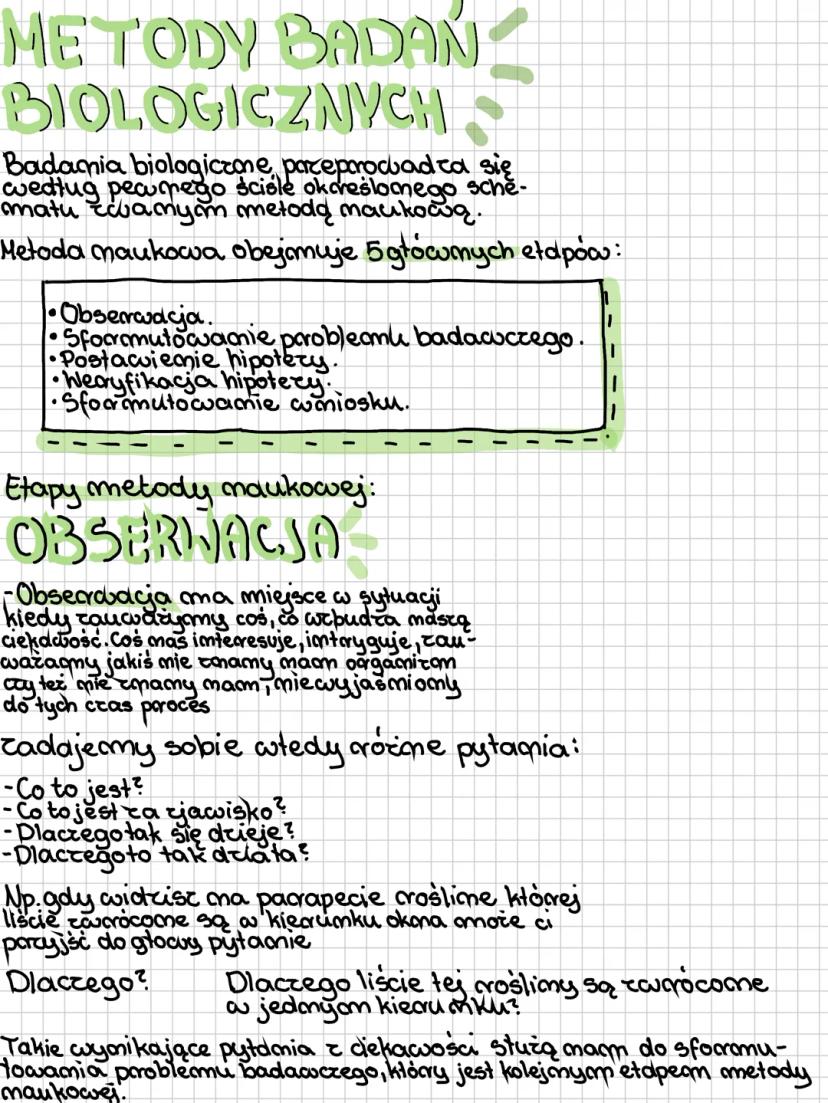 METODY BADAŃ
BIOLOGICZNYCH
Badania biologiczne, przeprowadza się
według pewnego ściśle określonego sche-
matu zwanym metodą naukową.
Metoda naukowa obejmuje 5 głównych etapów:
• Obserwacja.
• Sformułowanie problemu badawczego.
• Postawienie hipotezy.
• Weryfikacja hipotezy.
• Sformułowanie wniosku.
Etapy metody naukowej:
OBSERWACJA
- Obserwacja ma miejsce w sytuacji
kiedy zauważymy coś, co wzbudza naszą
ciekawość. Coś nas interesuje, intryguje, zau-
ważamy jakiś nie znany nam organizm
czy też nie znany nam, niewyjaśniony
do tych czas proces
zadajemy sobie wtedy różne pytania:
- Co to jest?
- Co to jest za zjawisko?
- Dlaczego tak się dzieje?
- Dlaczego to tak działa?
Np. gdy widzisz na parapecie roślinę której
liście zwrócone są w kierunku okna może ci
przyjść do głowy pytanie
Dlaczego? Dlaczego liście tej rośliny są zwrócone
w jednym kierunku?
Takie wynikające pytania z ciekawości służą nam do sformu-
łowania problemu badawczego, który jest kolejnym etapem metody
naukowej.